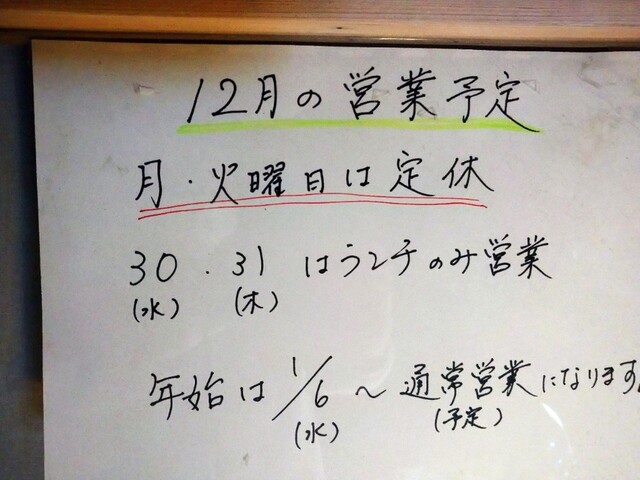 12月の営業予定
月・火曜日は定休
30・31はランチのみ営業
(水) (木)
年始は1/6～通常営業になります。
(水) (予定)